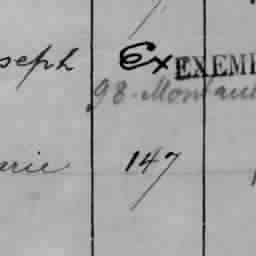 seph Ex EXEM
98-Mon
rie 147